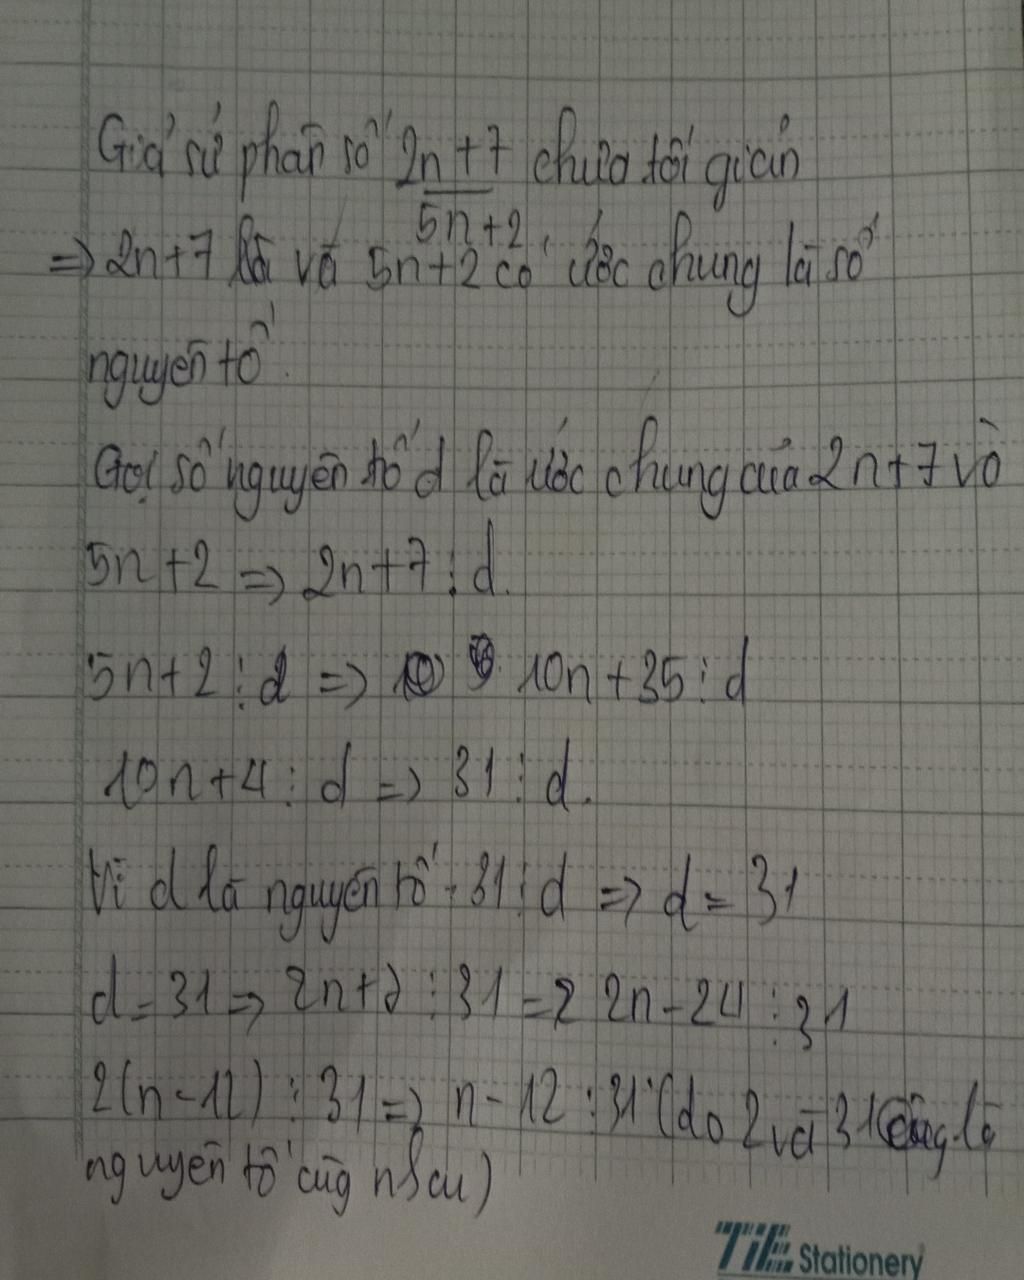 Giả sử phân số 2n+7/5n+2 chưa tối giản
=> 2n+7 và 5n+2 có ước chung là số
nguyên tố.
Gọi số nguyên tố d là ước chung của 2n+7 và
5n+2 => 2n+7 ⋮ d.
5n+2 ⋮ d => 10n+35 ⋮ d
10n+4 ⋮ d => 31 ⋮ d.
Vì d là nguyên tố. 31 ⋮ d => d = 31
d = 31 => 2n+7 ⋮ 31 => 2n-24 ⋮ 31
2(n-12) ⋮ 31 => n-12 ⋮ 31 (do 2 và 31 là
nguyên tố cùg nhau)
TiE Stationery